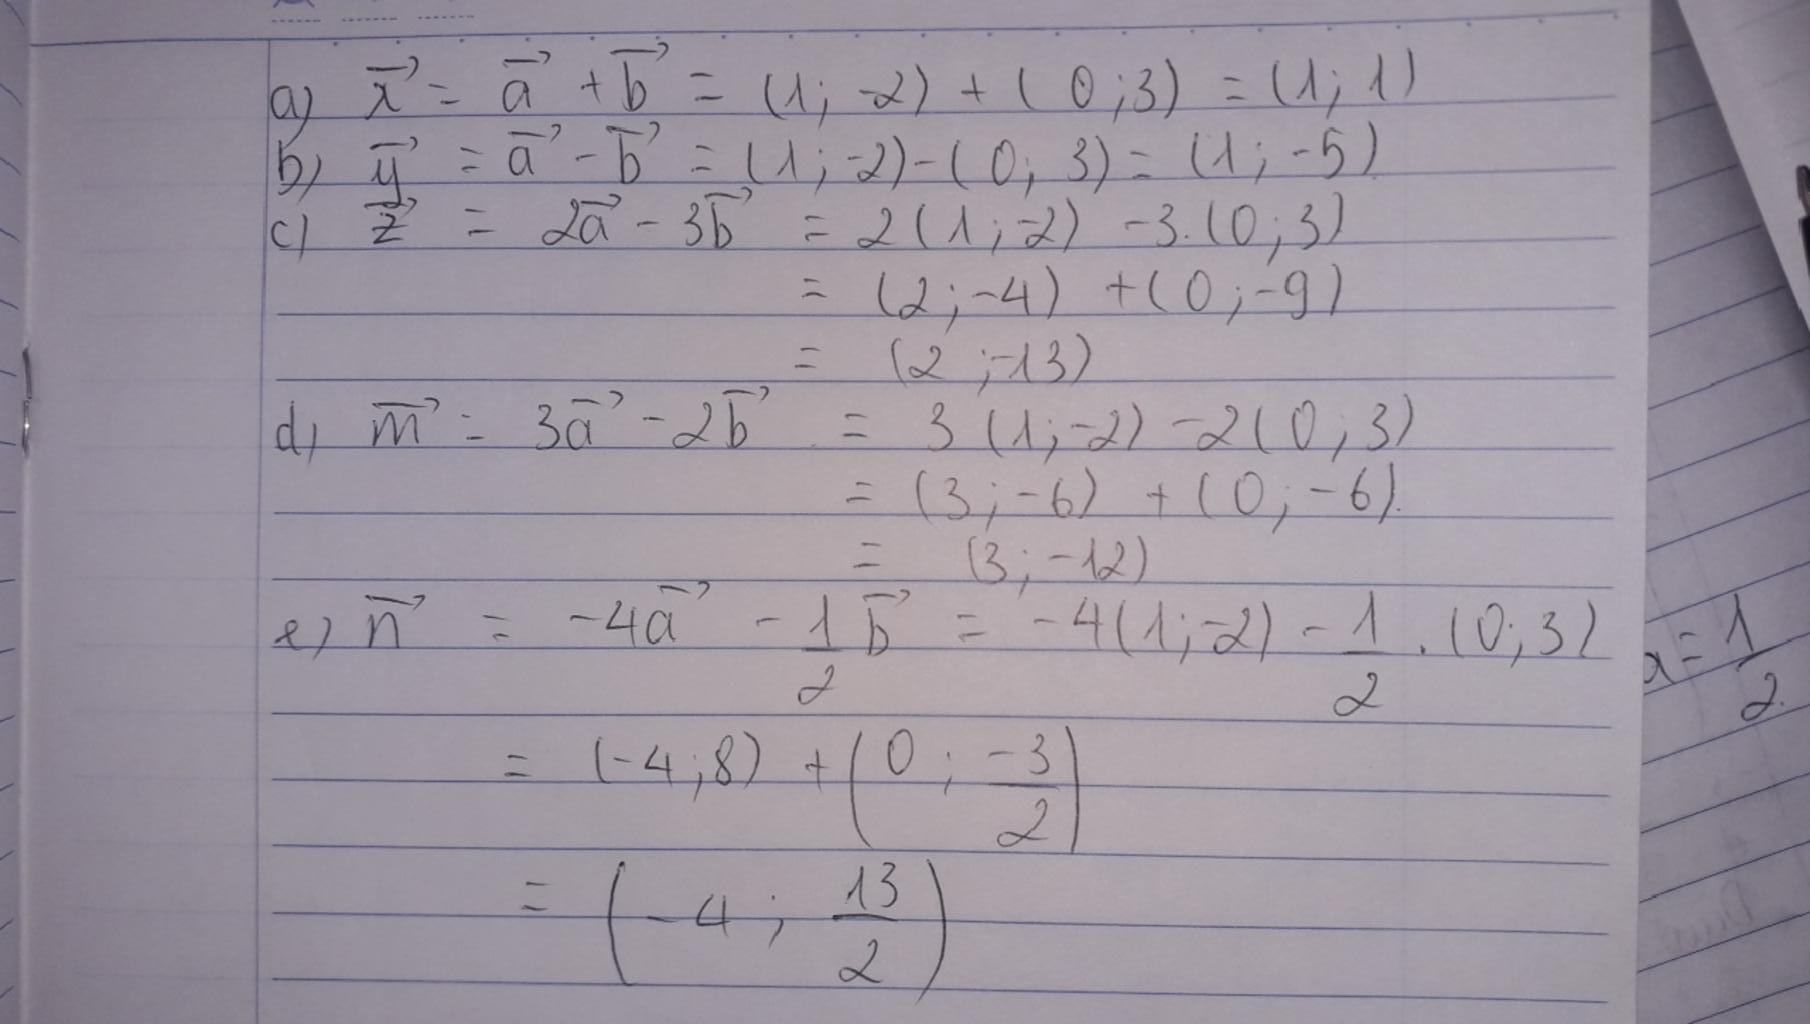 a) x⃗ = a⃗ + b⃗ = (1; -2) + (0; 3) = (1; 1)
b) y⃗ = a⃗ - b⃗ = (1; -2) - (0; 3) = (1; -5)
c) z⃗ = 2a⃗ - 3b⃗ = 2(1; -2) - 3.(0; 3)
= (2; -4) + (0; -9)
= (2; -13)
d) m⃗ = 3a⃗ - 2b⃗ = 3(1; -2) - 2(0; 3)
= (3; -6) + (0; -6)
= (3; -12)
e) n⃗ = -4a⃗ - 1/2 b⃗ = -4(1; -2) - 1/2 . (0; 3)
= (-4; 8) + (0; -3/2)
= (-4; 13/2)
= 1/2